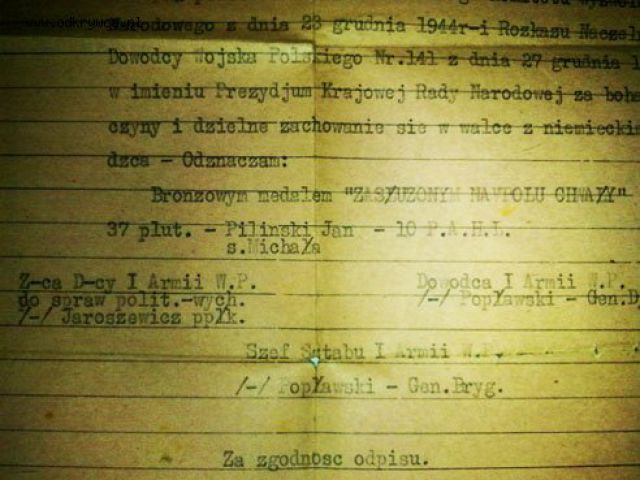 www.odkrywca.pl
Narodowego z dnia 23 grudnia 1944r-i Rozkazu Naczeln
Dowodcy Wojska Polskiego Nr.141 z dnia 27 grudnia 1
w imieniu Prezydjum Krajowej Rady Narodowej za boha
czyny i dzielne zachowanie sie w walce z niemieckim
dzca - Odznaczam:
Bronzowym medalem "ZASŁUZONYM NAVPOLU CHWAŁY"
37 plut. - Pilinski Jan - 10 P.A.H.L.
s.Michała
Z-ca D-cy I Armii W.P.
Dowodca I Armii W.P.
do spraw polit.-wych.
/-/ Popławski - Gen.B
/-/ Jaroszewicz ppłk.
Szef Sztabu I Armii W.P.
/-/ Popławski - Gen.Bryg.
Za zgodnosc odpisu.